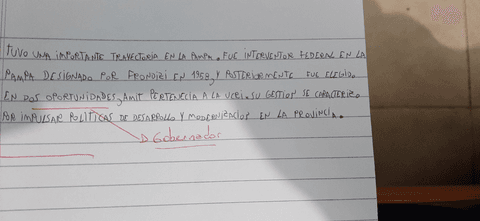 TUVO UNA IMPORTANTE TRAYECTORIA EN LA PAMPA. FUE INTERVENTOR FEDERAL EN LA
PAMPA DESIGNADO POR FRONDIZI EN 1958, Y POSTERIORMENTE FUE ELEGIDO
EN DOS OPORTUNIDADES, AMIT PERTENECÍA A LA UCRI. SU GESTIOS SE CARACTERIZO
POR IMPULSAR POLÍTICAS DE DESARROLLO Y MODERNIZACIOS EN LA PROVINCIA.
Gobernador